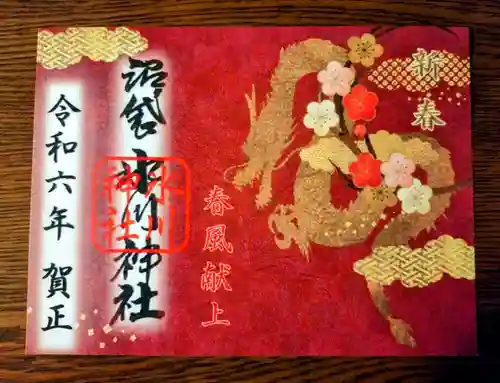 新春
春風献上
沼袋 氷川神社
氷川
神社
令和六年 賀正